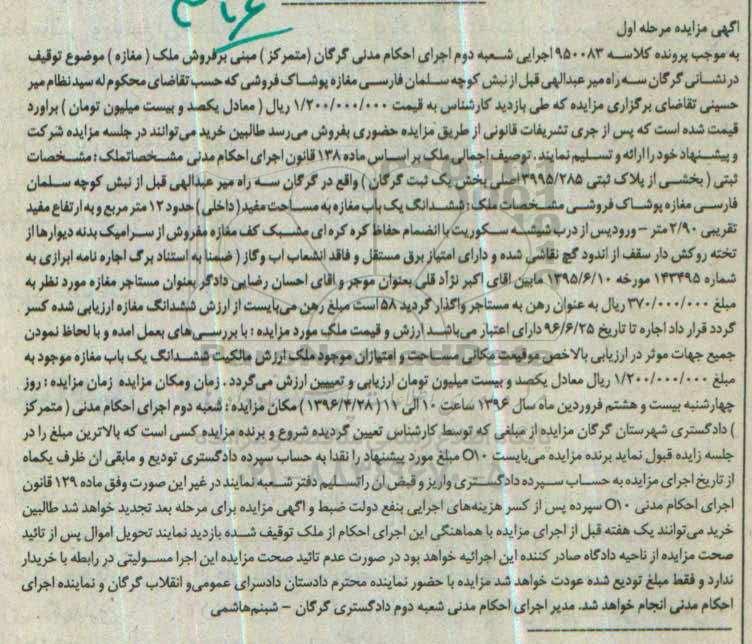 آگهی مزایده مرحله اول
به موجب پرونده کلاسه ۹۵۰۰۸۳ اجرایی شعبه دوم اجرای احکام مدنی گرگان (متمرکز) مبنی برفروش ملک (مغازه) موضوع توقیف
درنشانی گرگان سه راه میر عبدالهی قبل از نبش کوچه سلمان فارسی مغازه پوشاک فروشی که حسب تقاضای محکوم له سید نظام میر
حسینی تقاضای برگزاری مزایده که طی بازدید کارشناس به قیمت ۱/۲۰۰/۰۰۰/۰۰۰ ریال (معادل یکصد و بیست میلیون تومان) براورد
قیمت شده است که پس از جری تشریفات قانونی از طریق مزایده حضوری بفروش می‌رسد طالبین خرید می‌توانند در جلسه مزایده شرکت
و پیشنهاد خود را ارائه و تسلیم نمایند. توصیف اجمالی ملک بر اساس ماده ۱۳۸ قانون اجرای احکام مدنی مشخصاتملک: مشخصات
ثبتی (بخشی از پلاک ثبتی ۳۹۹۵/۲۸۵اصلی بخش یک ثبت گرگان) واقع در گرگان سه راه میر عبدالهی قبل از نبش کوچه سلمان
فارسی مغازه پوشاک فروشی مشخصات ملک: ششدانگ یک باب مغازه به مساحت مفید (داخلی) حدود ۱۲ متر مربع و به ارتفاع مفید
تقریبی ۲/۹۰ متر – ورود پس از درب شیشه سکوریت با انضمام حفاظ کره کره ای مشبک کف مغازه مفروش از سرامیک بدنه دیوارها از
تخته روکش دار سقف از اندود گچ نقاشی شده و دارای امتیاز برق مستقل و فاقد انشعاب اب وگاز (ضمنا به استناد برگ اجاره نامه ابرازی به
شماره ۱۴۳۴۹۵ مورخه ۱۳۹۵/۶/۱۰ مابین اقای اکبر نژاد قلی بعنوان موجر و اقای احسان رضایی دادگر بعنوان مستاجر مغازه مورد نظر به
مبلغ ۳۷۰/۰۰۰/۰۰۰ ریال به عنوان رهن به مستاجر واگذار گردید ۵۸ است مبلغ رهن می‌بایست از ارزش ششدانگ مغازه ارزیابی شده کسر
گردد قرار داد اجاره تا تاریخ ۹۶/۶/۲۵ دارای اعتبار می‌باشد ارزش و قیمت ملک مورد مزایده: با بررسی‌های بعمل امده و با لحاظ نمودن
جمیع جهات موثر در ارزیابی بالاخص موقیعت مکانی مساحت و امتیازان موجود ملک ارزش مالکیت ششدانگ یک باب مغازه موجود به
مبلغ ۱/۲۰۰/۰۰۰/۰۰۰ ریال معادل یکصد و بیست میلیون تومان ارزیابی و تعییین ارزش می‌گردد. زمان ومکان مزایده زمان مزایده: روز
چهارشنبه بیست و هشتم فروردین ماه سال ۱۳۹۶ ساعت ۱۰ الی ۱۱ (۱۳۹۶/۴/۲۸) مکان مزایده: شعبه دوم اجرای احکام مدنی (متمرکز
) دادگستری شهرستان گرگان مزایده از مبلغی که توسط کارشناس تعیین گردیده شروع و برنده مزایده کسی است که بالاترین مبلغ را در
جلسه زایده قبول نماید برنده مزایده می‌بایست O۱۰ مبلغ مورد پیشنهاد را نقدا به حساب سپرده دادگستری تودیع و مابقی ان ظرف یکماه
از تاریخ اجرای مزایده به حساب سپرده دادگستری واریز و قبض ان را تسلیم دفتر شعبه نمایند در غیر این صورت وفق ماده ۱۲۹ قانون
اجرای احکام مدنی O۱۰ سپرده پس از کسر هزینه‌های اجرایی بنفع دولت ضبط و اگهی مزایده برای مرحله بعد تجدید خواهد شد طالبین
خرید می‌توانند یک هفته قبل از اجرای مزایده با هماهنگی این اجرای احکام از ملک توقیف شده بازدید نمایند تحویل اموال پس از تائید
صحت مزایده از ناحیه دادگاه صادر کننده این اجرائیه خواهد بود در صورت عدم تائید صحت مزایده این اجرا مسولیتی در رابطه با خریدار
ندارد و فقط مبلغ تودیع شده عودت خواهد شد مزایده با حضور نماینده محترم دادستان دادسرای عمومی‌و انقلاب گرگان و نماینده اجرای
احکام مدنی انجام خواهد شد. مدیر اجرای احکام مدنی شعبه دوم دادگستری گرگان – شبنم‌هاشمی